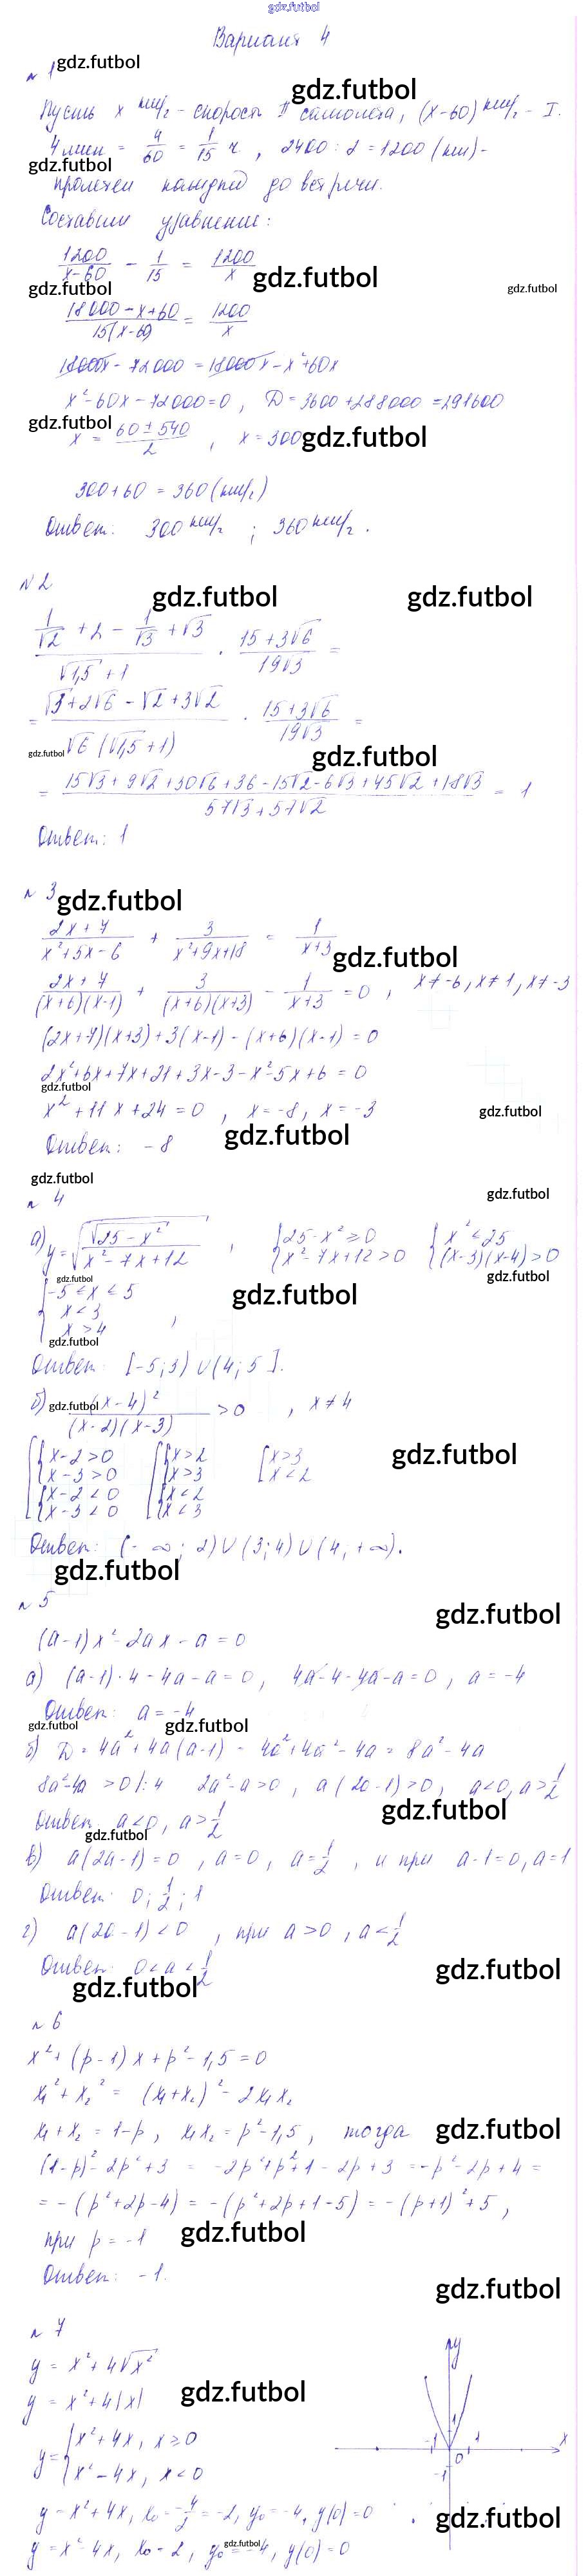 gdz.futbol
Вариант 4
№ 1 gdz.futbol
gdz.futbol
Пусть x км/ч - скорость II самолета, (x-60) км/ч - I.
4 мин = 4/60 = 1/15 ч, 2400 : 2 = 1200 (км) -
gdz.futbol
пролетел каждый до встречи.
Составим уравнение:
1200/(x-60) - 1/15 = 1200/x
gdz.futbol
gdz.futbol gdz.futbol
(18000-x+60)/(15(x-60)) = 1200/x
18000x - 72000 = 18000x - x²+60x
x²-60x-72000=0, D=3600+288000=291600
gdz.futbol
x = (60±540)/2, x=300 gdz.futbol
300+60 = 360 (км/ч)
Ответ: 300 км/ч; 360 км/ч.
№ 2
gdz.futbol gdz.futbol
(1/√2 + 2 - 1/√3 + √3)/(√1,5 + 1) · (15+3√6)/(19√3) =
= (√3+2√6-√2+3√2)/(√6(√1,5+1)) · (15+3√6)/(19√3) =
gdz.futbol gdz.futbol
= (15√3+9√2+30√6+36-15√2-6√3+45√2+18√3)/(57√3+57√2) = 1
Ответ: 1
№ 3 gdz.futbol
(2x+7)/(x²+5x-6) + 3/(x²+9x+18) = 1/(x+3)
gdz.futbol
(2x+7)/((x+6)(x-1)) + 3/((x+6)(x+3)) - 1/(x+3) = 0, x≠-6, x≠1, x≠-3
(2x+7)(x+3)+3(x-1)-(x+6)(x-1)=0
2x²+6x+7x+21+3x-3-x²-5x+6=0
gdz.futbol
x²+11x+24=0, x=-8, x=-3
gdz.futbol
Ответ: -8 gdz.futbol
gdz.futbol
№ 4 gdz.futbol
а) y=√(√(25-x²)/(x²-7x+12)), {25-x²≥0 {x²≤25
{x²-7x+12>0 {(x-3)(x-4)>0
gdz.futbol gdz.futbol
{-5≤x≤5 gdz.futbol
x<3
x>4,
gdz.futbol
Ответ: [-5;3)∪(4;5].
б) gdz.futbol (x-4)²/((x-2)(x-3)) >0, x≠4
gdz.futbol
[{x-2>0 [{x>2 [x>3
{x-3>0 {x>3 x<2
{x-2<0 {x<2
{x-3<0 {x<3
Ответ: (-∞; 2)∪(3;4)∪(4;+∞).
gdz.futbol
№ 5
gdz.futbol
(a-1)x²-2ax-a=0
а) (a-1)·4-4a-a=0, 4a-4-4a-a=0, a=-4
Ответ: a=-4
gdz.futbol gdz.futbol
б) D=4a²+4a(a-1)=4a²+4a²-4a=8a²-4a
8a²-4a>0 /:4 2a²-a>0, a(2a-1)>0, a<0, a>1/2
gdz.futbol
Ответ a<0, a>1/2
gdz.futbol
в) a(2a-1)=0, a=0, a=1/2, и при a-1=0, a=1
Ответ: 0; 1/2; 1
г) a(2a-1)<0, при a>0, a<1/2
Ответ: 0<a<1/2 gdz.futbol
gdz.futbol
№ 6
x²+(p-1)x+p²-1,5=0
x₁²+x₂²=(x₁+x₂)²-2x₁x₂
x₁+x₂=1-p, x₁x₂=p²-1,5, тогда gdz.futbol
(1-p)²-2p²+3 = -2p²+p²+1-2p+3 = -p²-2p+4 =
= -(p²+2p-4) = -(p²+2p+1-5) = -(p+1)²+5,
при p=-1 gdz.futbol
Ответ: -1.
gdz.futbol
№ 7
y=x²+4√x²
y=x²+4|x| gdz.futbol
y={x²+4x, x≥0
{x²-4x, x<0
y
x
1
-1 0 1
-1
y=x²+4x, x₀=-4/2=-2, y₀=-4, y(0)=0
gdz.futbol
gdz.futbol
y=x²-4x, x₀=2, y₀=-4, y(0)=0